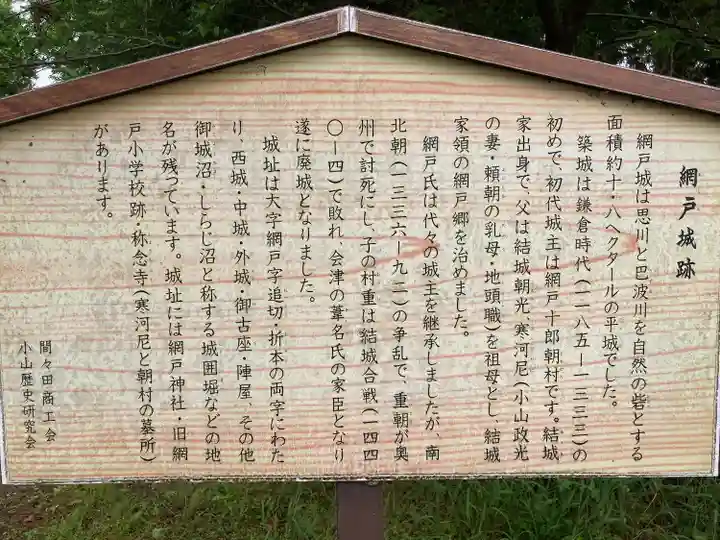 網戸城跡
網戸城は思川と巴波川を自然の砦とする
面積約十・八ヘクタールの平城でした。
築城は鎌倉時代(一一八五ー一三三三)の
初めで、初代城主は網戸十郎朝村です。結城
家出身で、父は結城朝光、寒河尼(小山政光
の妻・頼朝の乳母・地頭職)を祖母とし、結城
家領の網戸郷を治めました。
網戸氏は代々の城主を継承しましたが、南
北朝(一三三六ー九二)の争乱で、重朝が奥
州で討死にし、子の村重は結城合戦(一四四
〇ー四一)で敗れ、会津の葦名氏の家臣となり
遂に廃城となりました。
城址は大字網戸字道切・折本の両字にわた
り、西城・中城・外城・御古座・陣屋、その他
御城沼・しらじ沼と称する城囲堀などの地
名が残っています。城址には網戸神社・旧網
戸小学校跡・称念寺(寒河尼と朝村の墓所)
があります。
間々田商工会
小山歴史研究会